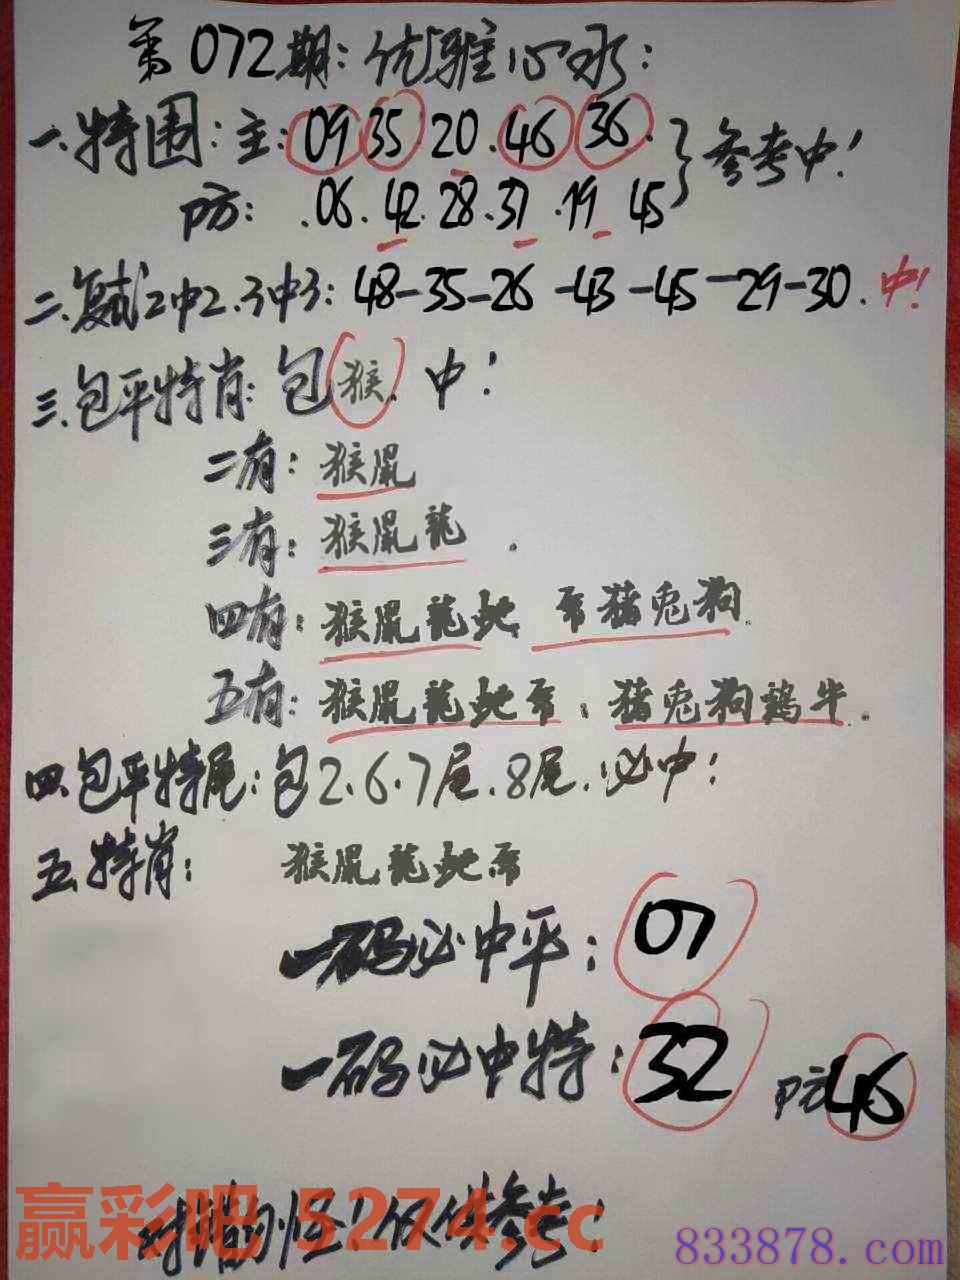 第072期:优雅心水:
一.特围:主:09 35 20.46 36.}参考中!
防:.06.42.28.37.19 45
二.复试2中2.3中3:48-35-26-43-45-29-30.中!
三.包平特肖:包猴.中!
二有:猴鼠
三有:猴鼠龍.
四有:猴鼠龍蛇 猪兔狗.
五有:猴鼠龍蛇 :猪兔狗鷄牛.
四.包平特尾:包2.6.7尾.8尾.必中!
五.特肖: 猴鼠龍蛇
一码必中平:07
一码必中特:32 防46
对错勿怪!仅供参考!
赢彩吧 5274.cc
833878.com